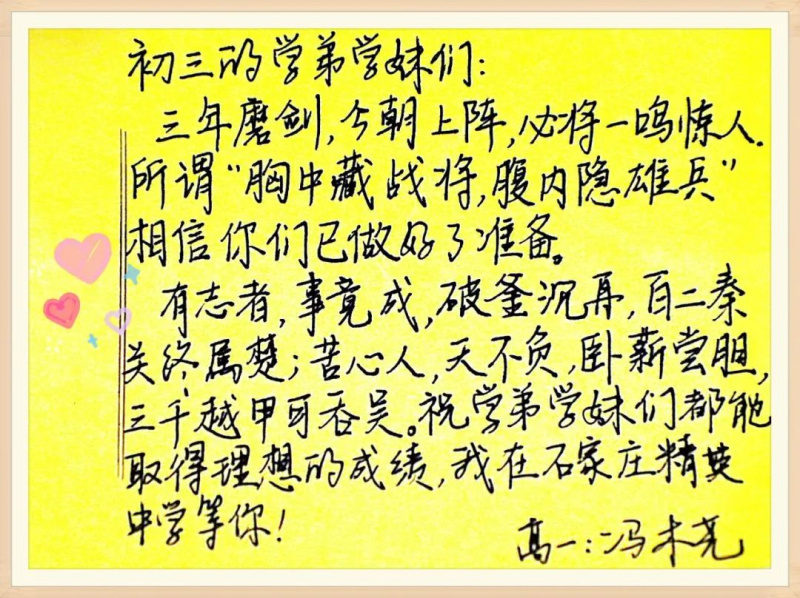 初三的学弟学妹们：
三年磨剑，今朝上阵，必将一鸣惊人.
所谓“胸中藏战将，腹内隐雄兵”
相信你们已做好了准备。
有志者，事竟成，破釜沉舟，百二秦
关终属楚；苦心人，天不负，卧薪尝胆，
三千越甲可吞吴。祝学弟学妹们都能
取得理想的成绩，我在石家庄精英
中学等你！
高一：冯木尧